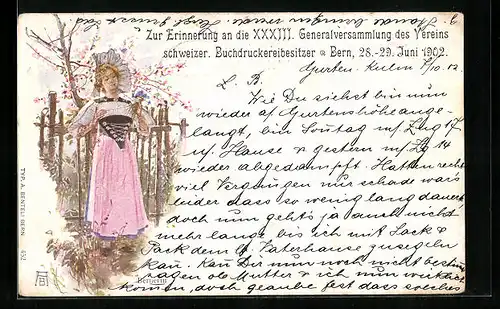 Zur Erinnerung an die XXXIII. Generalversammlung des Vereins
schweizer. Buchdruckereibesitzer Bern, 28.-29. Juni 1902.
Gurten-Kulm 7/10. 02
L. B.
Wie Du siehst bin nun
wieder auf Gurtenshöhe ange-
langt, bin Sontag m/ Zug 17
n/ Hause & gestern m/ Zg 14
wieder abgedampft. Hatten recht
viel Vergnügen nur schade wars
leider dass es so wenig lang dauert
doch nun gehts ja auch nicht
mehr lange bis ich mit Sack &
Pack dem lb. Vaterhause zusegeln
kan. Kan Dir nun noch nicht bestimt
sagen ob Mutter & ich nun wirklich
kommen, doch glaube fest dass solches
TYP. A. BENTELI BERN
652
Bernerin